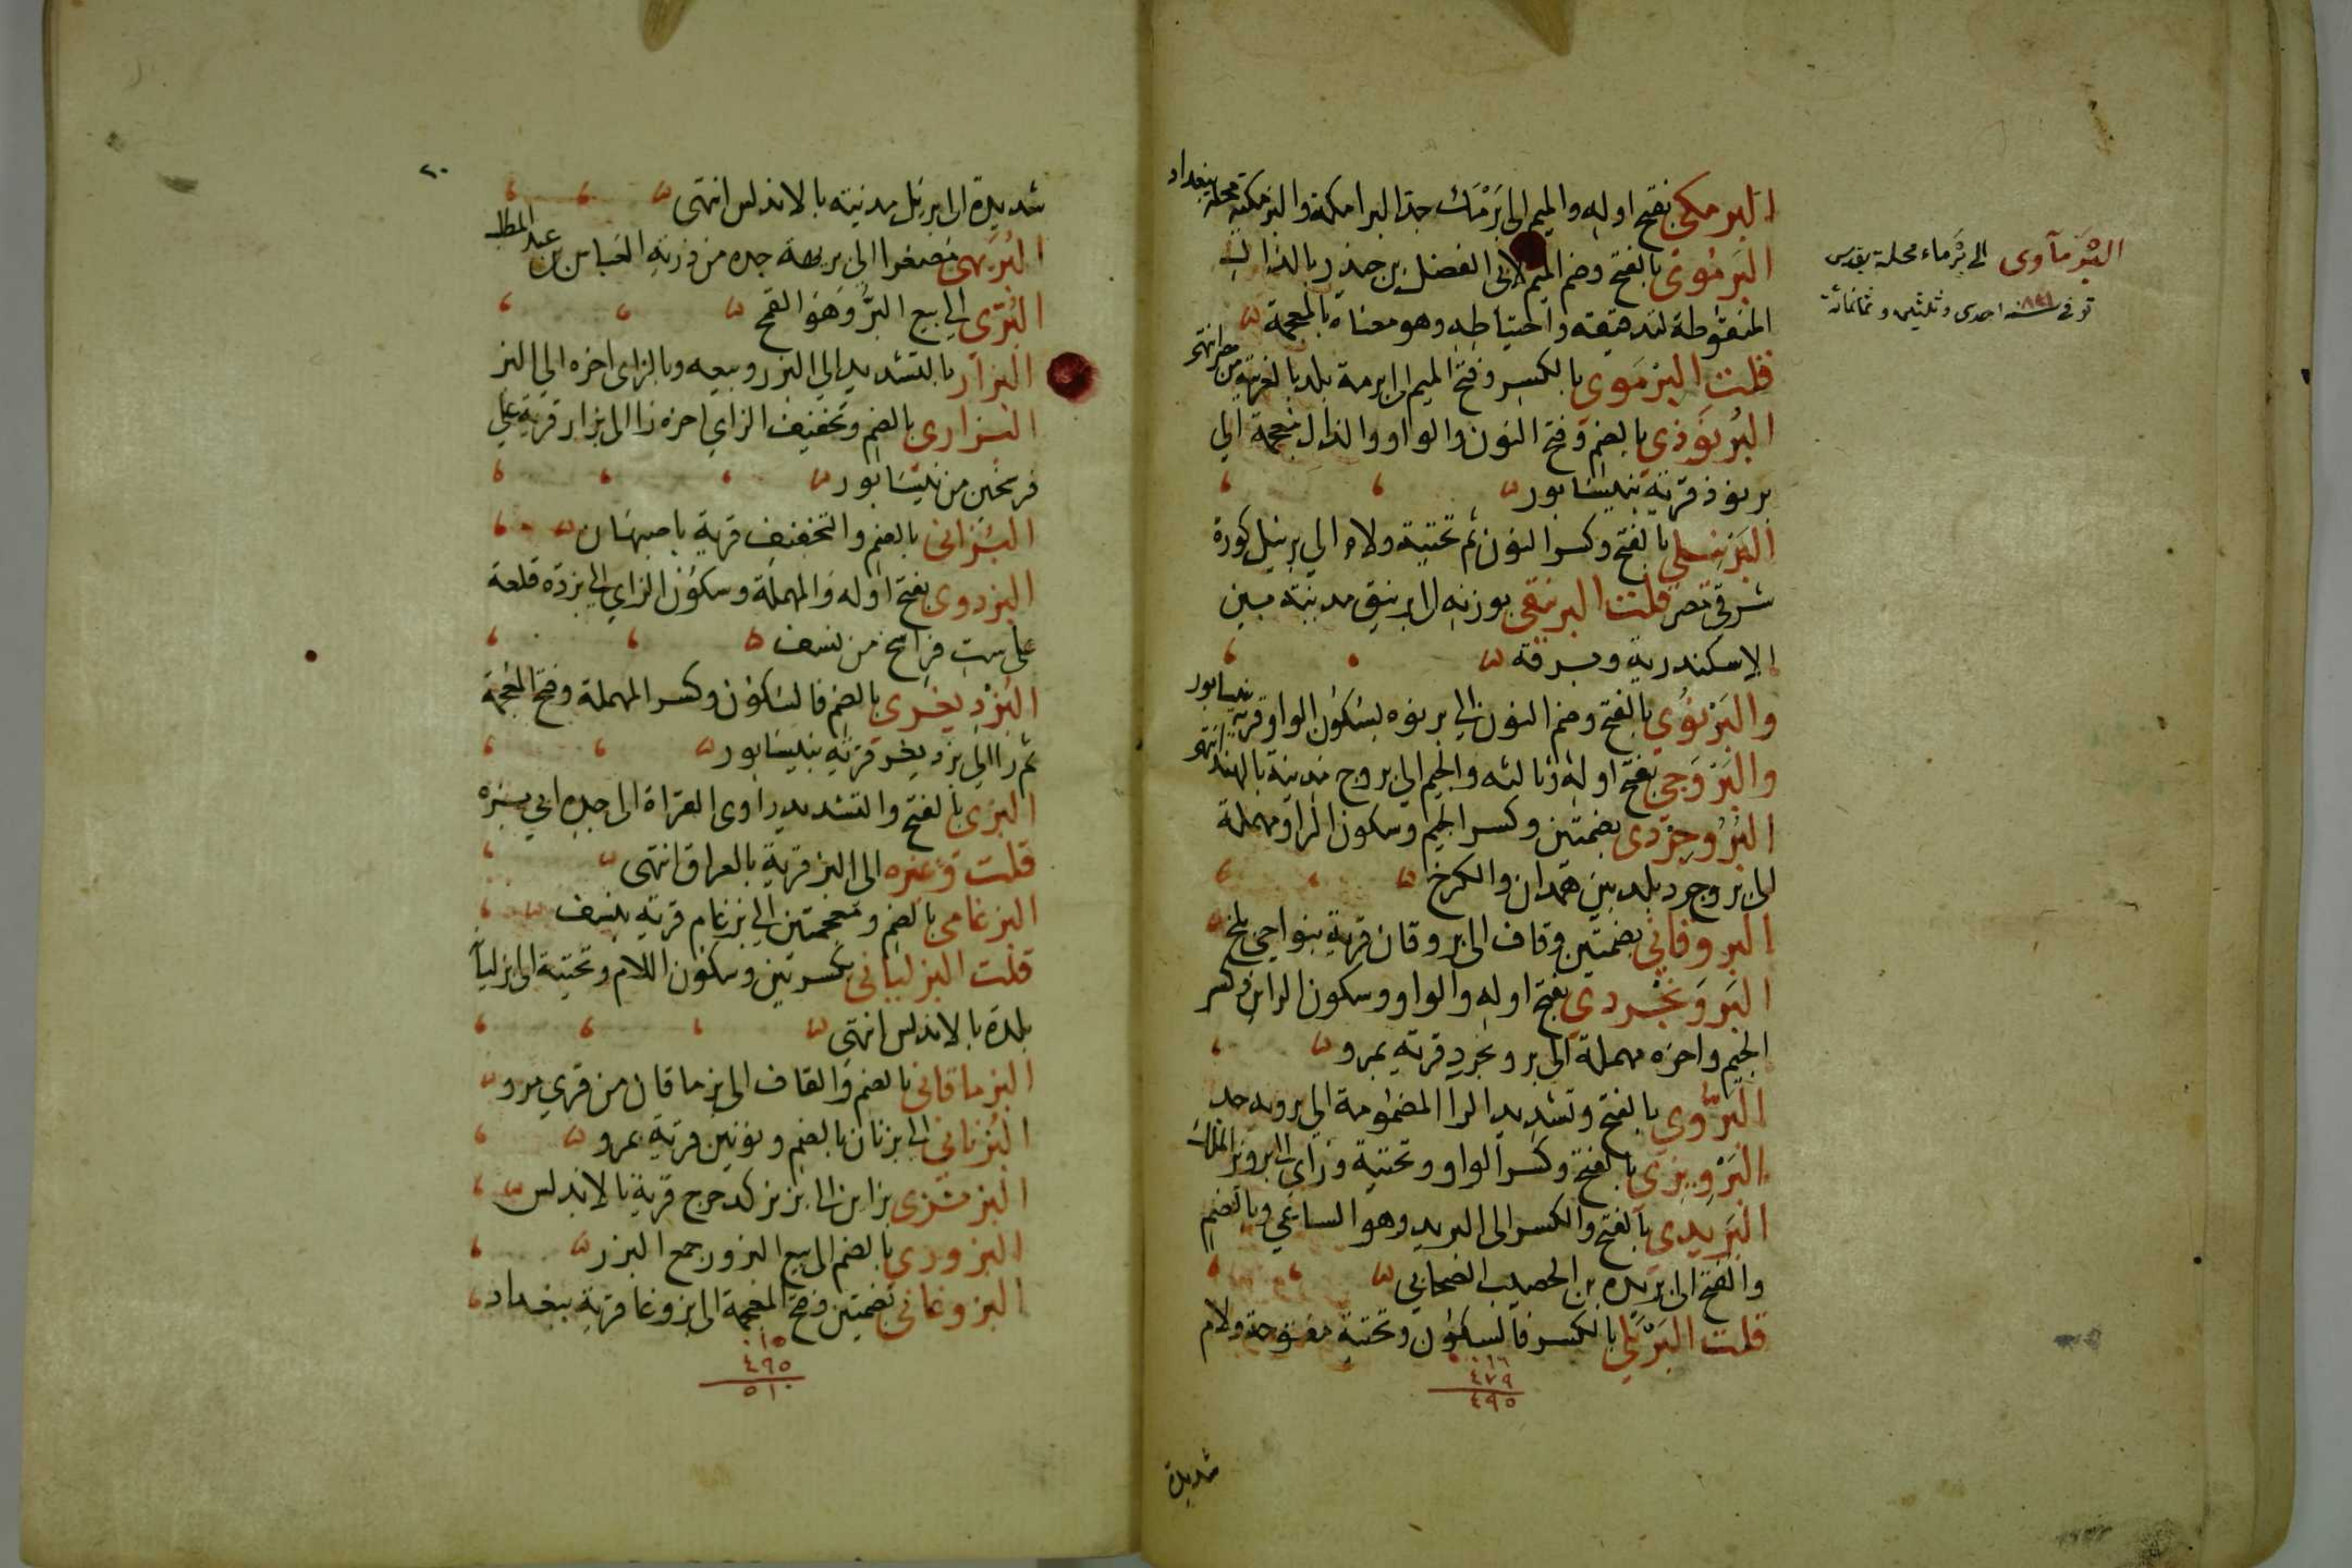 البرمكي بفتح اوله والميم الى بَرْمَك جد البرامكة والبرمكية محلة ببغداد
البَرمُوىّ بالفتح وضم الميم لابى الفضل
المنقوطة لتدقيقه واحتياطه وهو معناه بالمعجمة
قلت البِرْمَوى بالكسر وفتح الميم الى برمة بلد بالغربية من مصر انتهى
البُرنَوَذي بالضم وفتح النون والواو والذال معجمة الى
برنوذ قرية بنيسابور
البَرنيلي بالفتح وكسر النون ثم تحتية ولام الي برنيل كورة
شرقي مصر قلت البرنيقى بوزنه الى برنيق مدينة بين
الاسكندرية وبرقة
والبَرْنُوي بالفتح وضم النون الي برنوه بسكون الواو قرية بنيسابور
والبَرْوَجي بفتح اوله وثالثه والجيم الي بروج مدينة بالهند انتهى
البُرُوجِرْدى بضمتين وكسر الجيم وسكون الراء ومهملة
الى بروجرد بلد بين همدان والكرخ
البروقاني بضمتين وقاف الى بروقان قرية بنواحي بلخ
البَرْوَنجردي بفتح اوله والواو وسكون الراين وكسر
الجيم واخره مهملة الى برونجرد قرية بمرو
البَرُّوي بالفتح وتشديد الرا المضمومة الي برويه جد
البَرْوِيزي بالفتح وكسر الواو وتحتية وزاي الى برويز الملك
البَرِيدى بالفتح والكسر الى البريد وهو الساعي وبالضم
والفتح الى بريدة بن الحصيب الصحابي
قلت البِرْيَلي بالكسر فالسكون وتحتية مفتوحة ولام
١٦
٤٧٩
٤٩٥
شديدة
البَرْمآوى الى بَرْماء محلة بقدس
توفى سنة ٨٣١ احدى وثلثين وثمانمائة
٢٠
شديدة الى بريل مدينة بالاندلس انتهى
البُرَيهى مصغرا الى بريهة جده من ذرية العباس بن عبد المطلب
البُرّى الي بيع البُرّ وهو القمح
البزار بالتشديد الي البزر وبيعه وبالزاى اخره الى البز
البُزارى بالضم وتخفيف الزاي اخره را الى بزار قرية على
فرسخين من نيسابور
البُزانى بالضم والتخفيف قرية باصبهان
البزدوى بفتح اوله والمهملة وسكون الزاي الى بزدة قلعة
على ست فراسخ من نسف
البُزْدِيغَرى بالضم فالسكون وكسر المهملة وفتح المعجمة
ثم را الى بزديغر قرية بنيسابور
البزى بالفتح والتشديد راوى القراة الى جده ابي بزه
قلت وغيره الى البز قرية بالعراق انتهى
البزغامى بالضم ومعجمتين الى بزغام قرية بنسف
قلت البزليانى بكسرتين وسكون اللام وتحتية الى بزليآ
بلدة بالاندلس انتهى
البزماقانى بالضم والقاف الى بزماقان من قري مرو
البُزنانى الى بزنان بالضم ونونين قرية بمرو
البزبزى بزاين الى بزبز كدحرج قرية بالاندلس
البزورى بالضم الى بيع البزور جمع البزر
البزوغانى بضمتين وفتح المعجمة الى بزوغا قرية ببغداد
١٥
٤٩٥
٥١٠